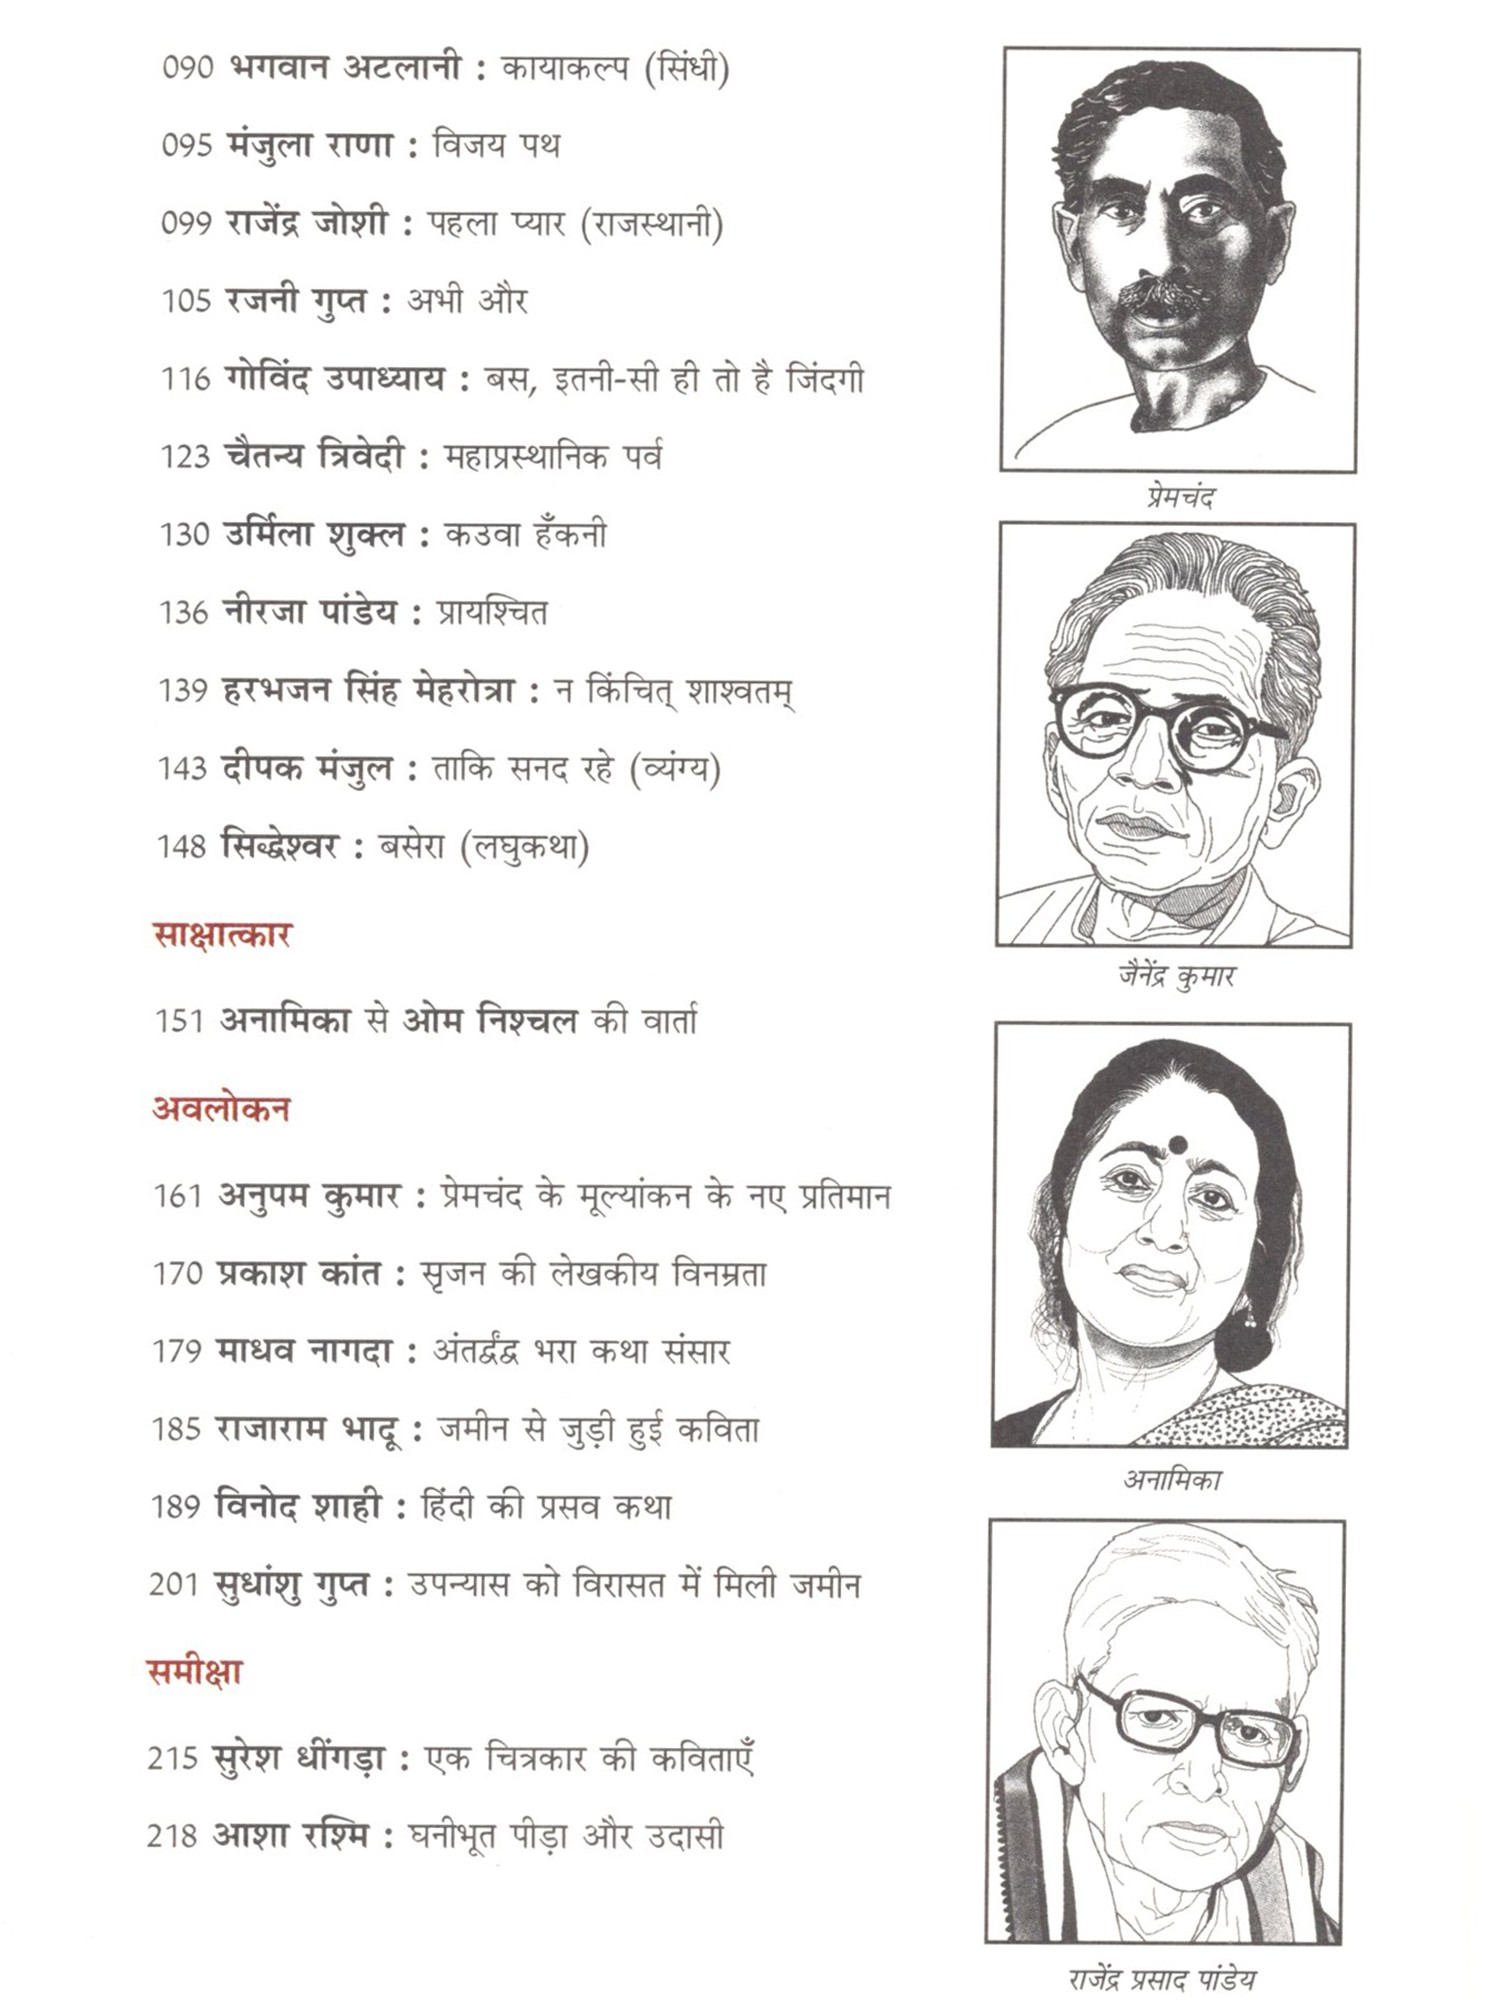 090 भगवान अटलानी : कायाकल्प (सिंधी)
095 मंजुला राणा : विजय पथ
099 राजेंद्र जोशी : पहला प्यार (राजस्थानी)
105 रजनी गुप्त : अभी और
116 गोविंद उपाध्याय : बस, इतनी-सी ही तो है जिंदगी
123 चैतन्य त्रिवेदी : महाप्रस्थानिक पर्व
130 उर्मिला शुक्ल : कउवा हँकनी
136 नीरजा पांडेय : प्रायश्चित
139 हरभजन सिंह मेहरोत्रा : न किंचित् शाश्वतम्
143 दीपक मंजुल : ताकि सनद रहे (व्यंग्य)
148 सिद्धेश्वर : बसेरा (लघुकथा)
साक्षात्कार
151 अनामिका से ओम निश्चल की वार्ता
अवलोकन
161 अनुपम कुमार : प्रेमचंद के मूल्यांकन के नए प्रतिमान
170 प्रकाश कांत : सृजन की लेखकीय विनम्रता
179 माधव नागदा : अंतर्द्वंद्व भरा कथा संसार
185 राजाराम भादू : जमीन से जुड़ी हुई कविता
189 विनोद शाही : हिंदी की प्रसव कथा
201 सुधांशु गुप्त : उपन्यास को विरासत में मिली जमीन
समीक्षा
215 सुरेश धींगड़ा : एक चित्रकार की कविताएँ
218 आशा रश्मि : घनीभूत पीड़ा और उदासी
प्रेमचंद
जैनेंद्र कुमार
अनामिका
राजेंद्र प्रसाद पांडेय